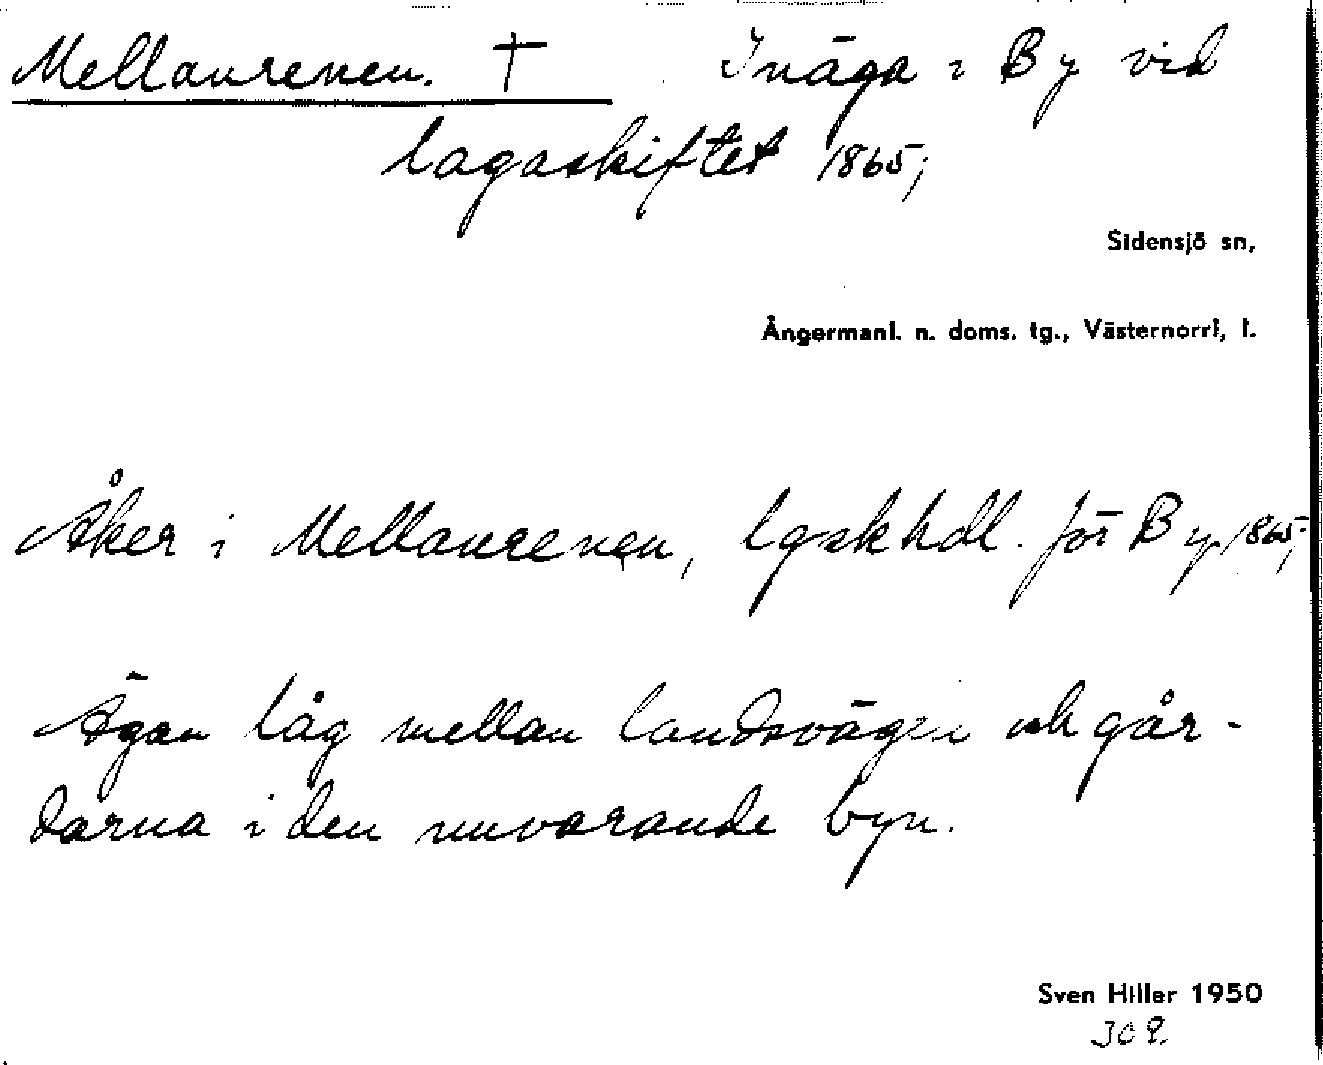 Mellanrenen. † Inäga i By vid
lagaskiftet 1865;
Sidensjö sn,
Ångermanl. n. doms. tg., Västernorrl, l.
Åker i Mellanrenen, lgskhdl. för By 1865;
Ägan låg mellan landsvägen och går-
darna i den nuvarande byn.
Sven Hiller 1950